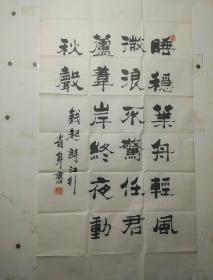 睡穩葉舟輕風
微浪不驚任君
蘆葦岸終夜動
秋聲
錢起詩江行
書